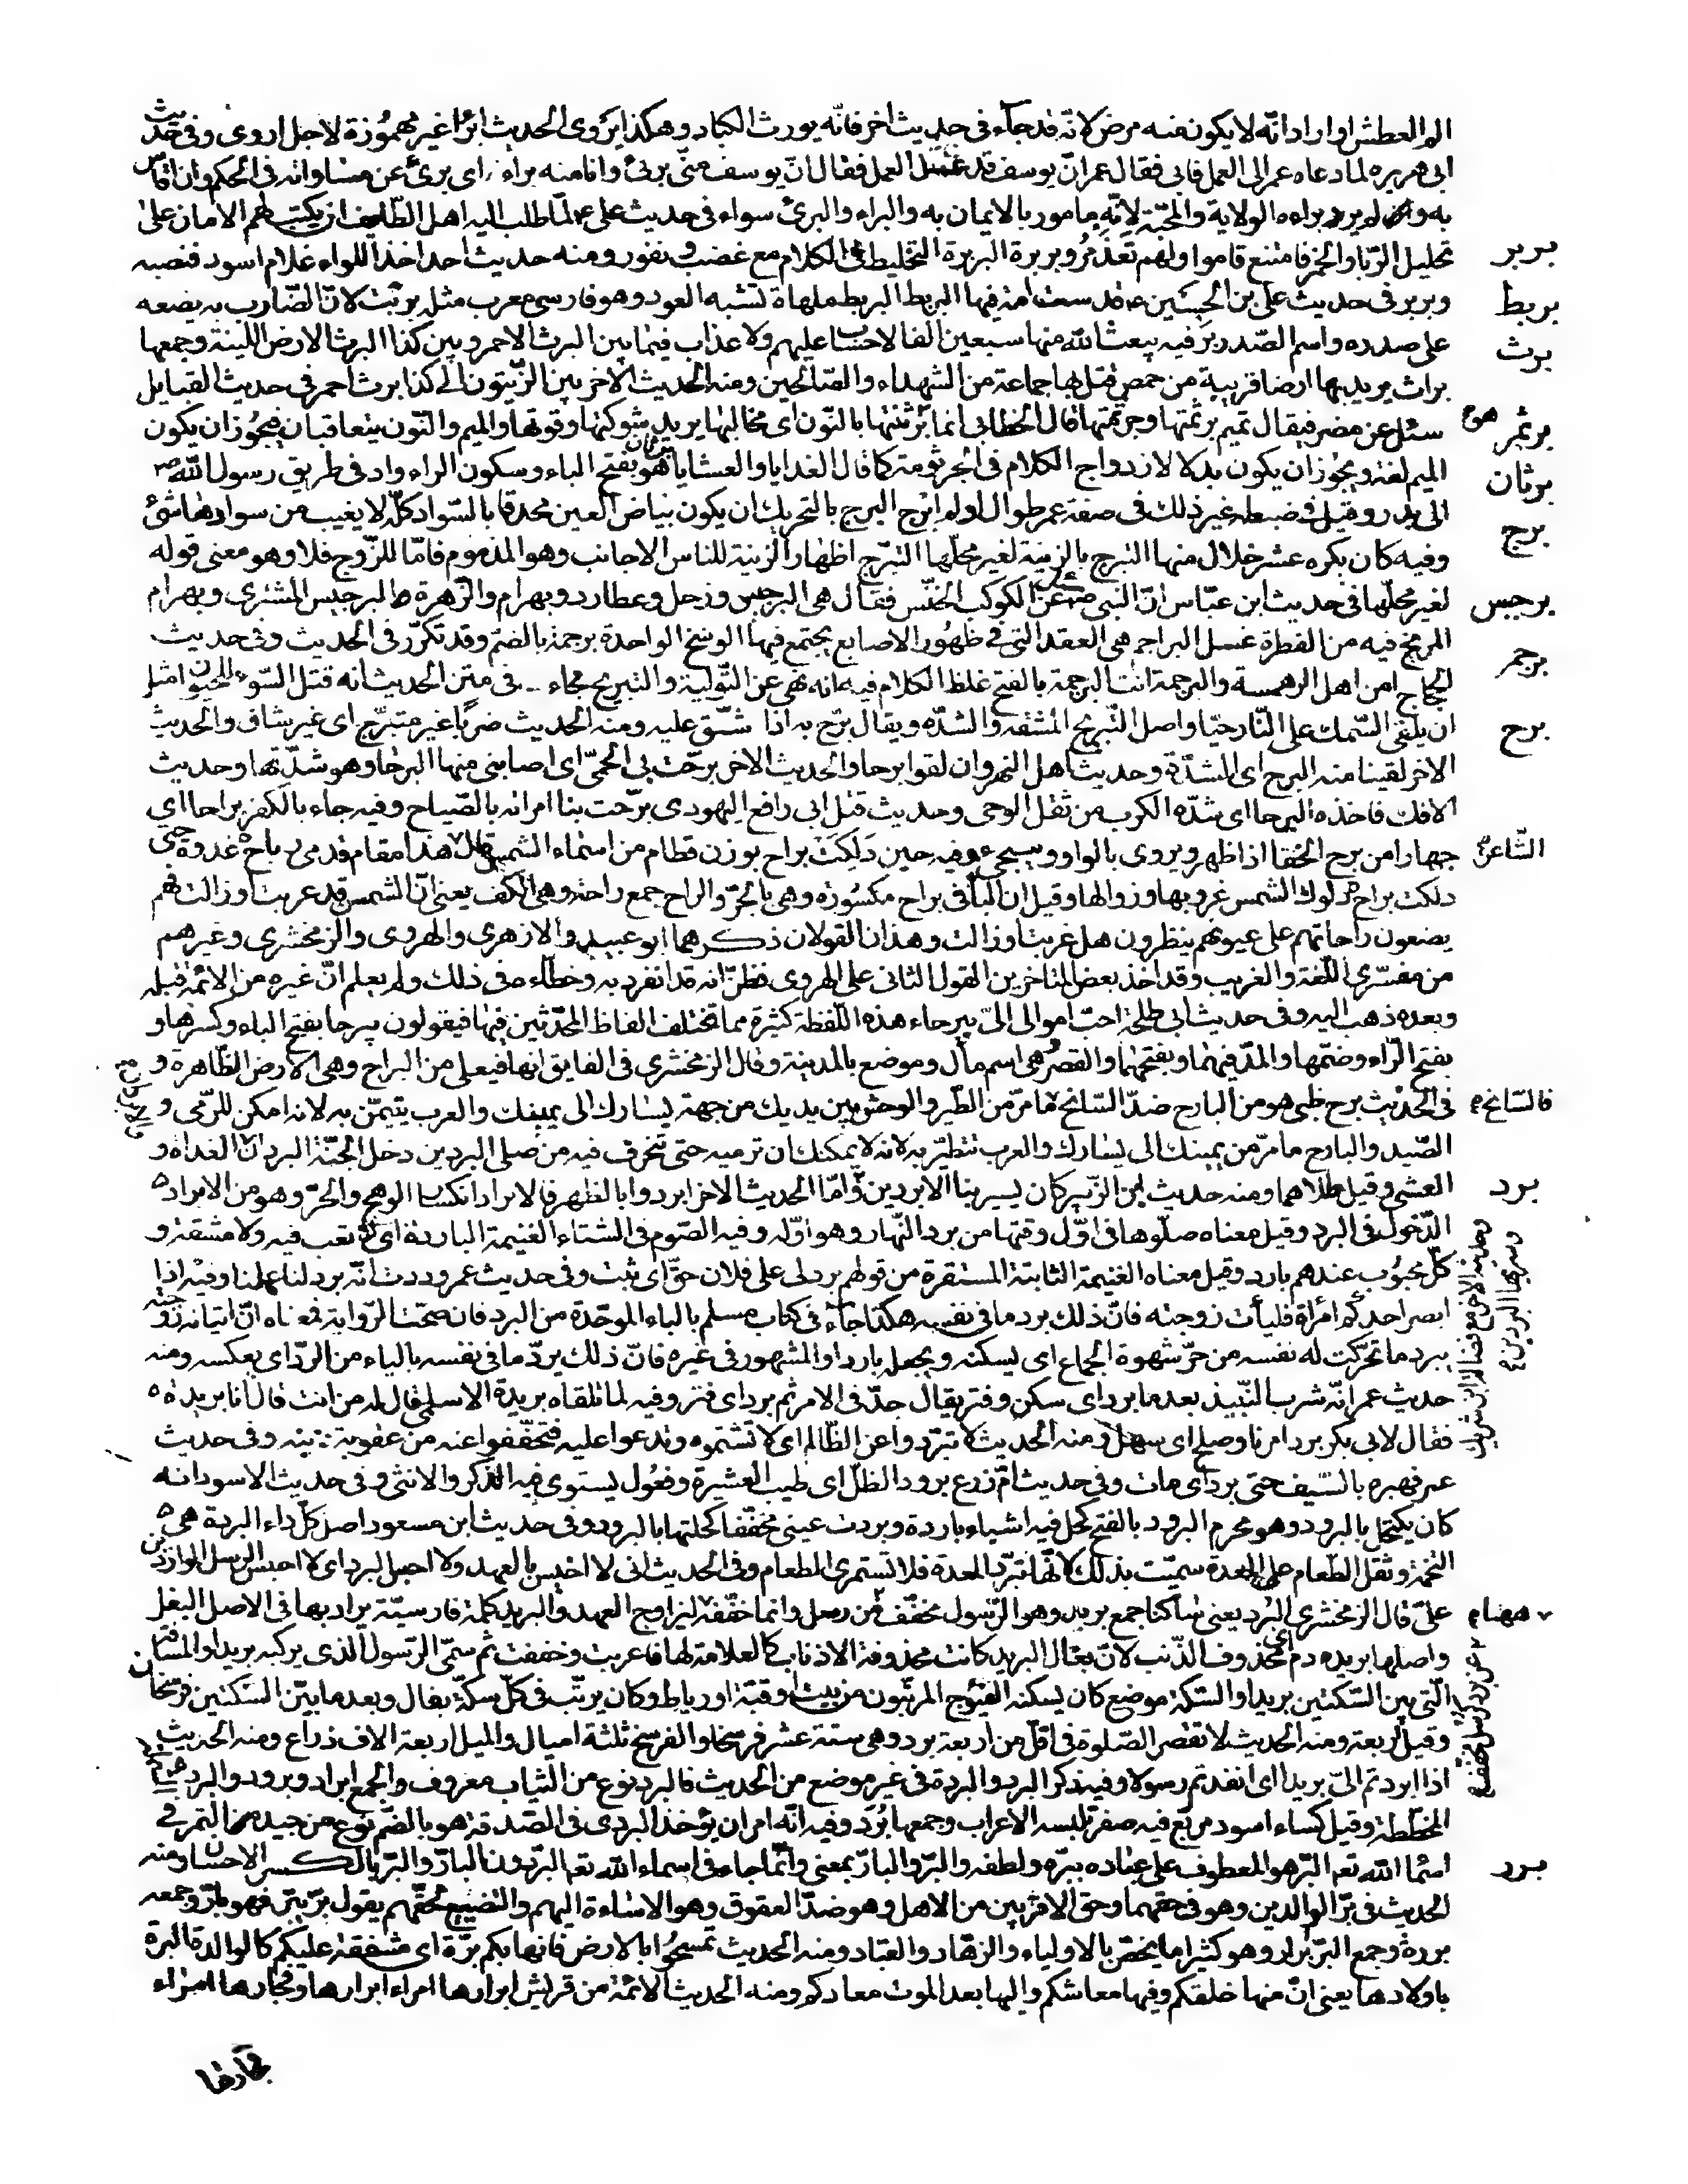 الم العطش او اراد انه لا يكون منه مرض لانه قد جاء في حديث اخر فانه يورث الكباد وهكذا يروى الحديث ابرا غير مهموزة لاجل اروى وفي حديث
ابي هريرة لما دعاه عمر الى العمل فابى فقال عمر ان يوسف قد سئل العمل فقال ان يوسف منى برئ وانا منه براء اى برئ عن مساواته في الحكم وان اقاس
به ولم يرد براءة الولاية والمحبة لانه مامور بالايمان به والبراء والبرئ سواء في حديث على ع لما طلب اليه اهل الطايف ان يكتب لهم الامان على
بربر تحليل الربا والخمر فامتنع قاموا ولهم تغذمر وبربرة البربرة التخليط في الكلام مع غضب ونفور ومنه حديث احد اخذ اللواء غلام اسود فنصبه
بربط وبربر في حديث على بن الحسين ع لا قدست امة فيها البربط البربط ملهاة تشبه العود وهو فارسى معرب مثل بربت لان الضارب به يضعه
برث على صدره واسم الصدر بر فيه يبعث الله منها سبعين الفا لا حساب عليهم ولا عذاب فيما بين البرث الاحمر وبين كذا البرث الارض اللينة وجمعها
براث يريد بها ارضا قريبة من حمص قتل بها جماعة من الشهداء والصالحين ومنه الحديث الاخر بين الزيتون الى كذا برث احمر في حديث القبايل
برثم سئل عن مضر فيقال تميم برثمتها وجرثمتها قال الخطابى انما برثنتها بالنون اى مخالبها يريد شوكتها وقوتها والميم والنون يتعاقبان فيجوز ان يكون
برثان الميم لغة ويجوز ان يكون بدلا لازدواج الكلام في الجرثومة كما قال الغدايا والعشايا هو بفتح الباء وسكون الراء واد في طريق رسول الله ص
برج الى بدر وقيل في ضبطه غير ذلك في صفة عمر طوال ادلم ابرج البرج بالتحريك ان يكون بياض العين محدقا بالسواد كله لا يغيب من سوادها شئ
وفيه كان يكره عشر خلال منها التبرج بالزينة لغير محلها التبرج اظهار الزينة للناس الاجانب وهو المذموم فاما للزوج فلا وهو معنى قوله
برجس لغير محلها في حديث ابن عباس ان النبى ص سئل عن الكوكب الخنس فقال هى البرجيس وزحل وعطارد وبهرام والزهرة البرجيس المشترى وبهرام
برجم المريخ فيه من الفطرة غسل البراجم هى العقد التى في ظهور الاصابع يجتمع فيها الوسخ الواحدة برجمة بالضم وقد تكرر في الحديث وفى حديث
الحجاج امن اهل الرهمسة والبرجمة انت البرجمة بالفتح غلظ الكلام فيه انه نهى عن التولية والتبريح جاء في متن الحديث انه قتل السوء للحيوان مثل
برح ان يلقى السمك على النار حيا واصل التبريح المشقة والشدة ويقال برح به اذا شق عليه ومنه الحديث ضربا غير مبرح اى غير شاق والحديث
الاخر لقينا منه البرح اى الشدة وحديث اهل النهروان لقوا برحا والحديث الاخر برحت بى الحمى اى اصابنى منها البرحا وهو شدتها وحديث
الافك فاخذه البرحا اى شدة الكرب من ثقل الوحى وحديث قتل ابى رافع اليهودى برحت بنا امراته بالصياح وفيه جاء بالكفر براحا اى
جهارا من برح الخفا اذا ظهر ويروى بالواو وسيجئ وفيه حين دلكت براح بوزن قطام من اسماء الشمس قال الشاعر هذا مقام قدمى رباح غدوة حتى
دلكت براح دلوك الشمس غروبها وزوالها وقيل ان الباء في براح مكسورة وهى باء الجر والراح جمع راحة وهى الكف يعنى ان الشمس قد غربت او زالت فهم
يضعون راحاتهم على عيونهم ينظرون هل غربت او زالت وهذان القولان ذكرهما ابو عبيد والازهرى والهروى والزمخشرى وغيرهم
من مفسرى اللغة والغريب وقد اخذ بعض المتاخرين القول الثانى على الهروى فظن انه قد انفرد به وخطاه في ذلك ولم يعلم ان غيره من الائمة قبله
وبعده ذهب اليه وفى حديث ابى طلحة احب اموالى الى بيرحاء هذه اللفظة كثيرة مما تختلف الفاظ المحدثين فيها فيقولون بيرحا بفتح الباء وكسرها و
بفتح الراء وضمها والمد فيهما وبفتحهما والقصر هى اسم مال وموضع بالمدينة وقال الزمخشرى في الفايق انها فيعلى من البراح وهى الارض الظاهرة و
في الحديث برح ظبى هو من البارح ضد السانح فالسانح ما مر من الطير والوحش بين يديك من جهة يسارك الى يمينك والعرب يتيمن به لانه امكن للرمى و
الصيد والبارح ما مر من يمينك الى يسارك والعرب تتطير به لانه لا يمكنك ان ترميه حتى تنحرف فيه من صلى البردين دخل الجنة البردان الغداة و
برد العشى وقيل ظلاهما ومنه حديث ابن الزبير كان يسير بنا الابردين واما الحديث الاخر ابردوا بالظهر فالابراد انكسار الوهج والحر وهو من الابراد
الدخول في البرد وقيل معناه صلوها في اول وقتها من برد النهار وهو اوله وفيه الصوم في الشتاء الغنيمة الباردة اى لا تعب فيه ولا مشقة و
كل محبوب عندهم بارد وقيل معناه الغنيمة الثابتة المستقرة من قولهم برد لى على فلان حق اى ثبت وفى حديث عمر وددت انه برد لنا عملنا وفيه اذا
ابصر احدكم امراة فليات زوجته فان ذلك برد ما في نفسه هكذا جاء في كتاب مسلم بالباء الموحدة من البرد فان صحت الرواية فمعناه ان اتيانه زوجته
يبرد ما تحركت له نفسه من حر شهوة الجماع اى يسكنه ويجعله باردا والمشهور في غيره فان ذلك يرد ما في نفسه بالياء من الرد اى يعكسه ومنه
حديث عمر انه شرب النبيذ بعد ما برد اى سكن وفتر يقال جد في الامر ثم برد اى فتر وفيه لما تلقاه بريدة الاسلمى قال له من انت قال انا بريدة
فقال لابى بكر برد امرنا وصلح اى سهل ومنه الحديث لا تبردوا عن الظالم اى لا تشتموه وتدعوا عليه فتخففوا عنه من عقوبة ذنبه وفى حديث
عمر فهبره بالسيف حتى برد اى مات وفى حديث ام زرع برود الظل اى طيب العشيرة وفعول يستوى فيه الذكر والانثى وفى حديث الاسود انه
كان يكتحل بالبرود وهو محرم البرود بالفتح كحل فيه اشياء باردة وبردت عينى مخففا كحلتها بالبرود وفى حديث ابن مسعود اصل كل داء البردة هى
التخمة وثقل الطعام على المعدة سميت بذلك لانها تبرد المعدة فلا تستمرى الطعام وفى الحديث انى لا اخيس بالعهد ولا احبس البرد اى لا احبس الرسل الواردين
على قال الزمخشرى البرد يعنى ساكنا جمع بريد وهو الرسول مخفف من برد كرسل وانما خففه ههنا ليزاوج العهد والبريد كلمة فارسية يراد بها في الاصل البغل
واصلها بريده دم اى محذوف الذنب لان بغال البريد كانت محذوفة الاذناب كالعلامة لها فاعربت وخففت ثم سمى الرسول الذى يركبه بريدا والمسافة
التى بين السكتين بريدا والسكة موضع كان يسكنه الفيوج المرتبون من بيت او قبة او رباط وكان يرتب في كل سكة بغال وبعد ما بين السكتين فرسخان
وقيل اربعة ومنه الحديث لا تقصر الصلوة في اقل من اربعة برد وهى ستة عشر فرسخا والفرسخ ثلثة اميال والميل اربعة الاف ذراع ومنه الحديث
اذا ابردتم الى بريدا اى انفذتم رسولا وفيه ذكر البرد والبردة في غير موضع من الحديث فالبرد نوع من الثياب معروف والجمع ابراد وبرود والبردة
المخططة وقيل كساء اسود مربع فيه صغر تلبسه الاعراب وجمعها برد وفيه انه امر ان يؤخذ البردى في الصدقة هو بالضم نوع من جيد التمر في
برر اسماء الله تعالى البر هو العطوف على عباده ببره ولطفه والبر والبار بمعنى وانما جاء في اسماء الله تعالى البر دون البار والبر بالكسر الاحسان ومنه
الحديث في بر الوالدين وهو في حقهما وحق الاقربين من الاهل وهو ضد العقوق وهو الاساءة اليهم والتضييع لحقهم يقول بر يبر فهو بار وجمعه
بررة وجمع البر ابرار وهو كثيرا ما يختص بالاولياء والزهاد والعباد ومنه الحديث تمسحوا بالارض فانها بكم برة اى مشفقة عليكم كالوالدة البرة
باولادها يعنى ان منها خلقكم وفيها معاشكم واليها بعد الموت معادكم ومنه الحديث الائمة من قريش ابرارها امراء ابرارها وفجارها امراء
فجارها